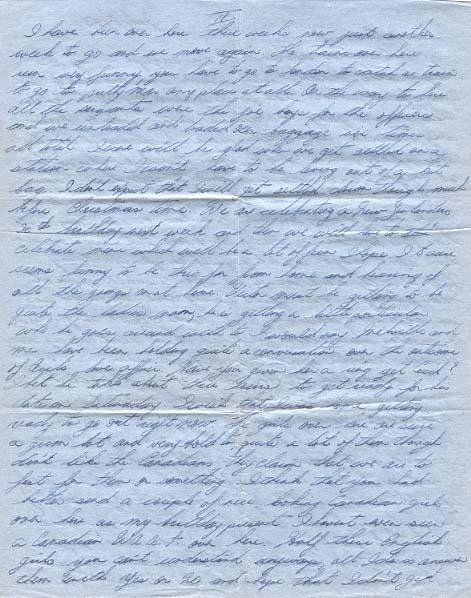 II
I have been over here three weeks now just another
week to go and we move again. The trains over here
run very funny you have to go to London to catch a train
to go to pretty near any place at all. On the way to here
all the sergeants were the joe boys for the officers
and we unloaded and loaded their baggage six times
all told. I sure will be glad when we get settled on a
station where I won't have to be living out of a kit
bag. I don't expect that I will get settled down though much
before Christmas time. We are celebrating a New Zealanders
20th birthday next week and then we will have to
celebrate mine which will be a lot of fun I hope. It sure
seems funny to be this far from home and hearing of
all the gangs on at home. must be getting to be
quite the ladies man, he is getting a little particular
who he goes around with
me have been holding quite a conversation over the
of girls love affair. Have you given her a ring yet
I bet he takes about five hours to get ready for his
date on Saturday.
ready to go out right now. The girls over here are sure
a rum lot and very bold quite a lot of them though
don't like the Canadians. They claim that we are to
fast for them or something. I think that you had
better send a couple of nice looking Canadian girls
over here as my birthday present. I haven't even seen
a Canadian over here. Half these English
girls you can't understand anyways, all I do is answer
them with Yes or No and hope that I don't get